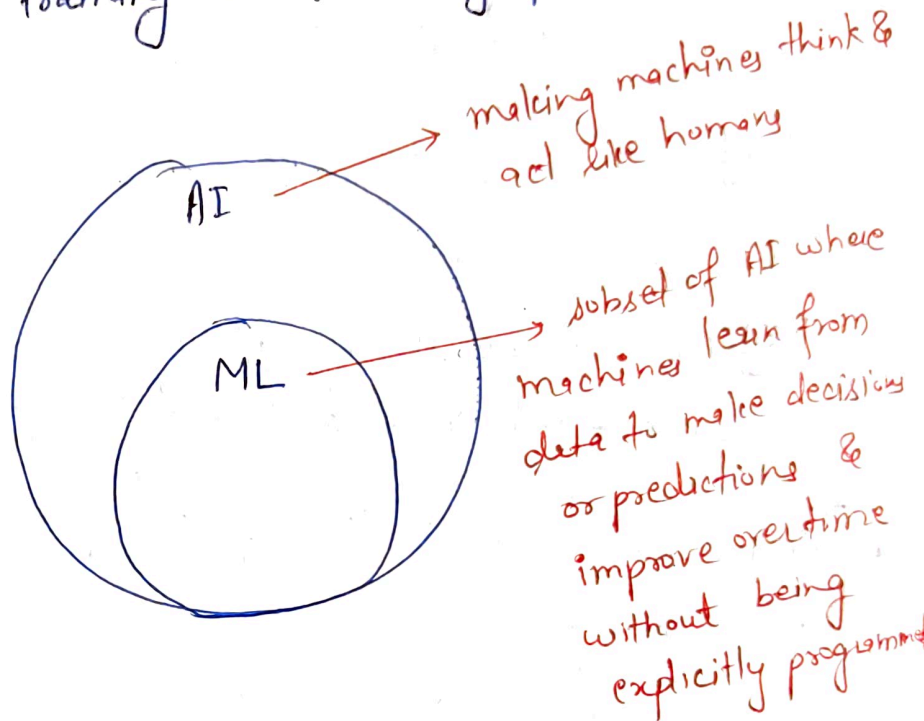 making machines think &
act like humans
AI
subset of AI where
machines learn from
data to make decisions
or predictions &
improve overtime
without being
explicitly programmed
ML